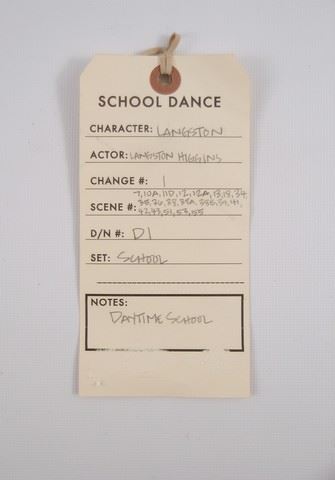 SCHOOL DANCE
CHARACTER: LANGSTON
ACTOR: LANGSTON HIGGINS
CHANGE #: 1
7, 10A, 11D, 12, 12A, 13, 18, 34
SCENE #: 35, 36, 38, 38A, 38B, 39, 41,
42, 43, 51, 53, 55
D/N #: D1
SET: SCHOOL
NOTES:
DAYTIME SCHOOL